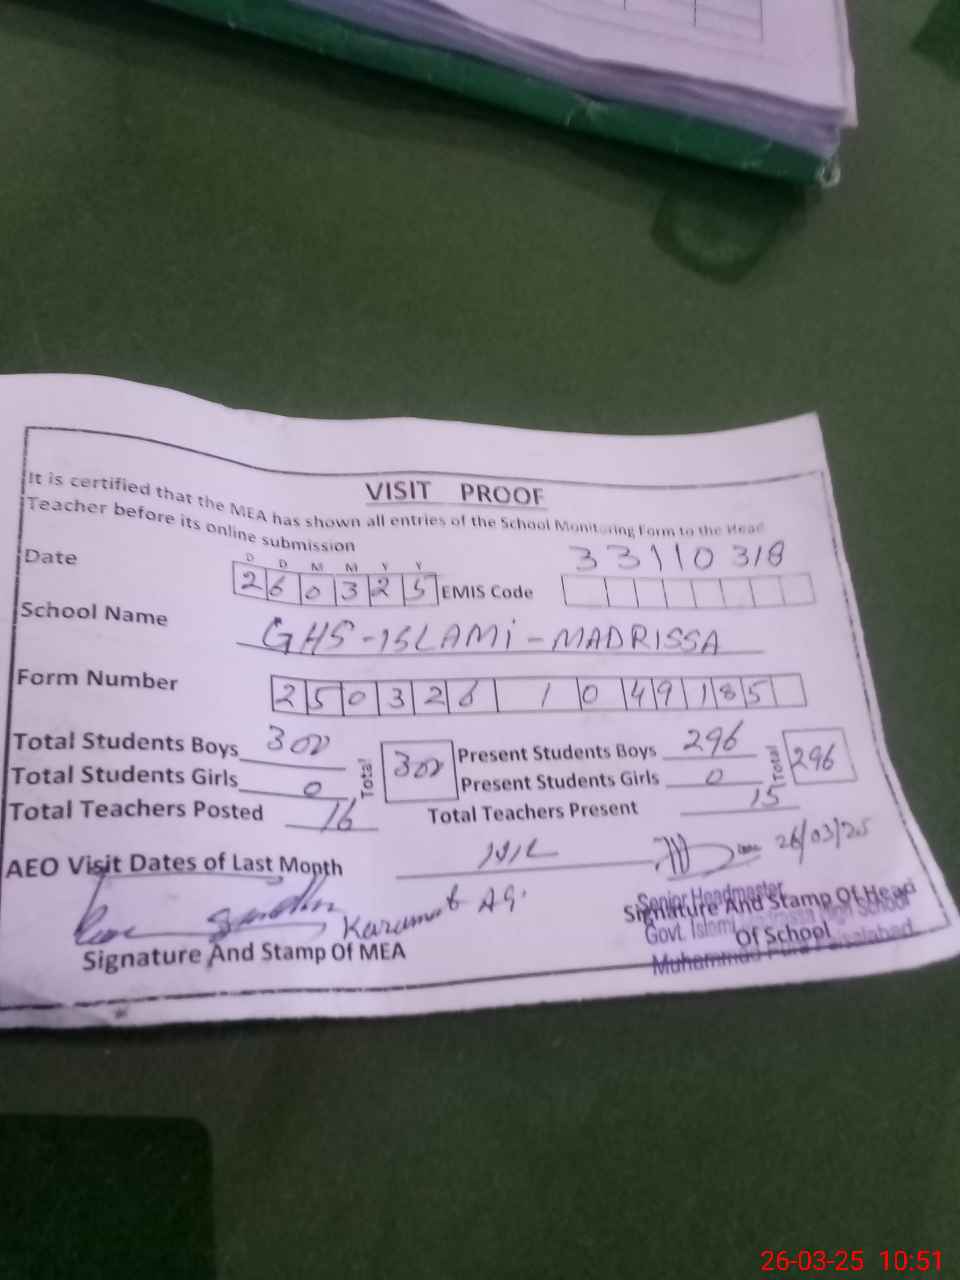 VISIT PROOF
It is certified that the MEA has shown all entries of the School Monitoring Form to the Head
Teacher before its online submission
D D M M Y Y
Date 260325 EMIS Code 33110318
School Name GHS-ISLAMi-MADRISSA
Form Number 250326 1 049185
Total Students Boys 300 Total 300 Present Students Boys 296 Total 296
Total Students Girls 0 Present Students Girls 0
Total Teachers Posted 16 Total Teachers Present 15
AEO Visit Dates of Last Month NIL
26/03/25
Karamat
Signature And Stamp Of MEA
Senior Headmaster
Signature And Stamp Of Head
Govt. Islami High School
Of School
Muhammad Pura Faisalabad
26-03-25 10:51